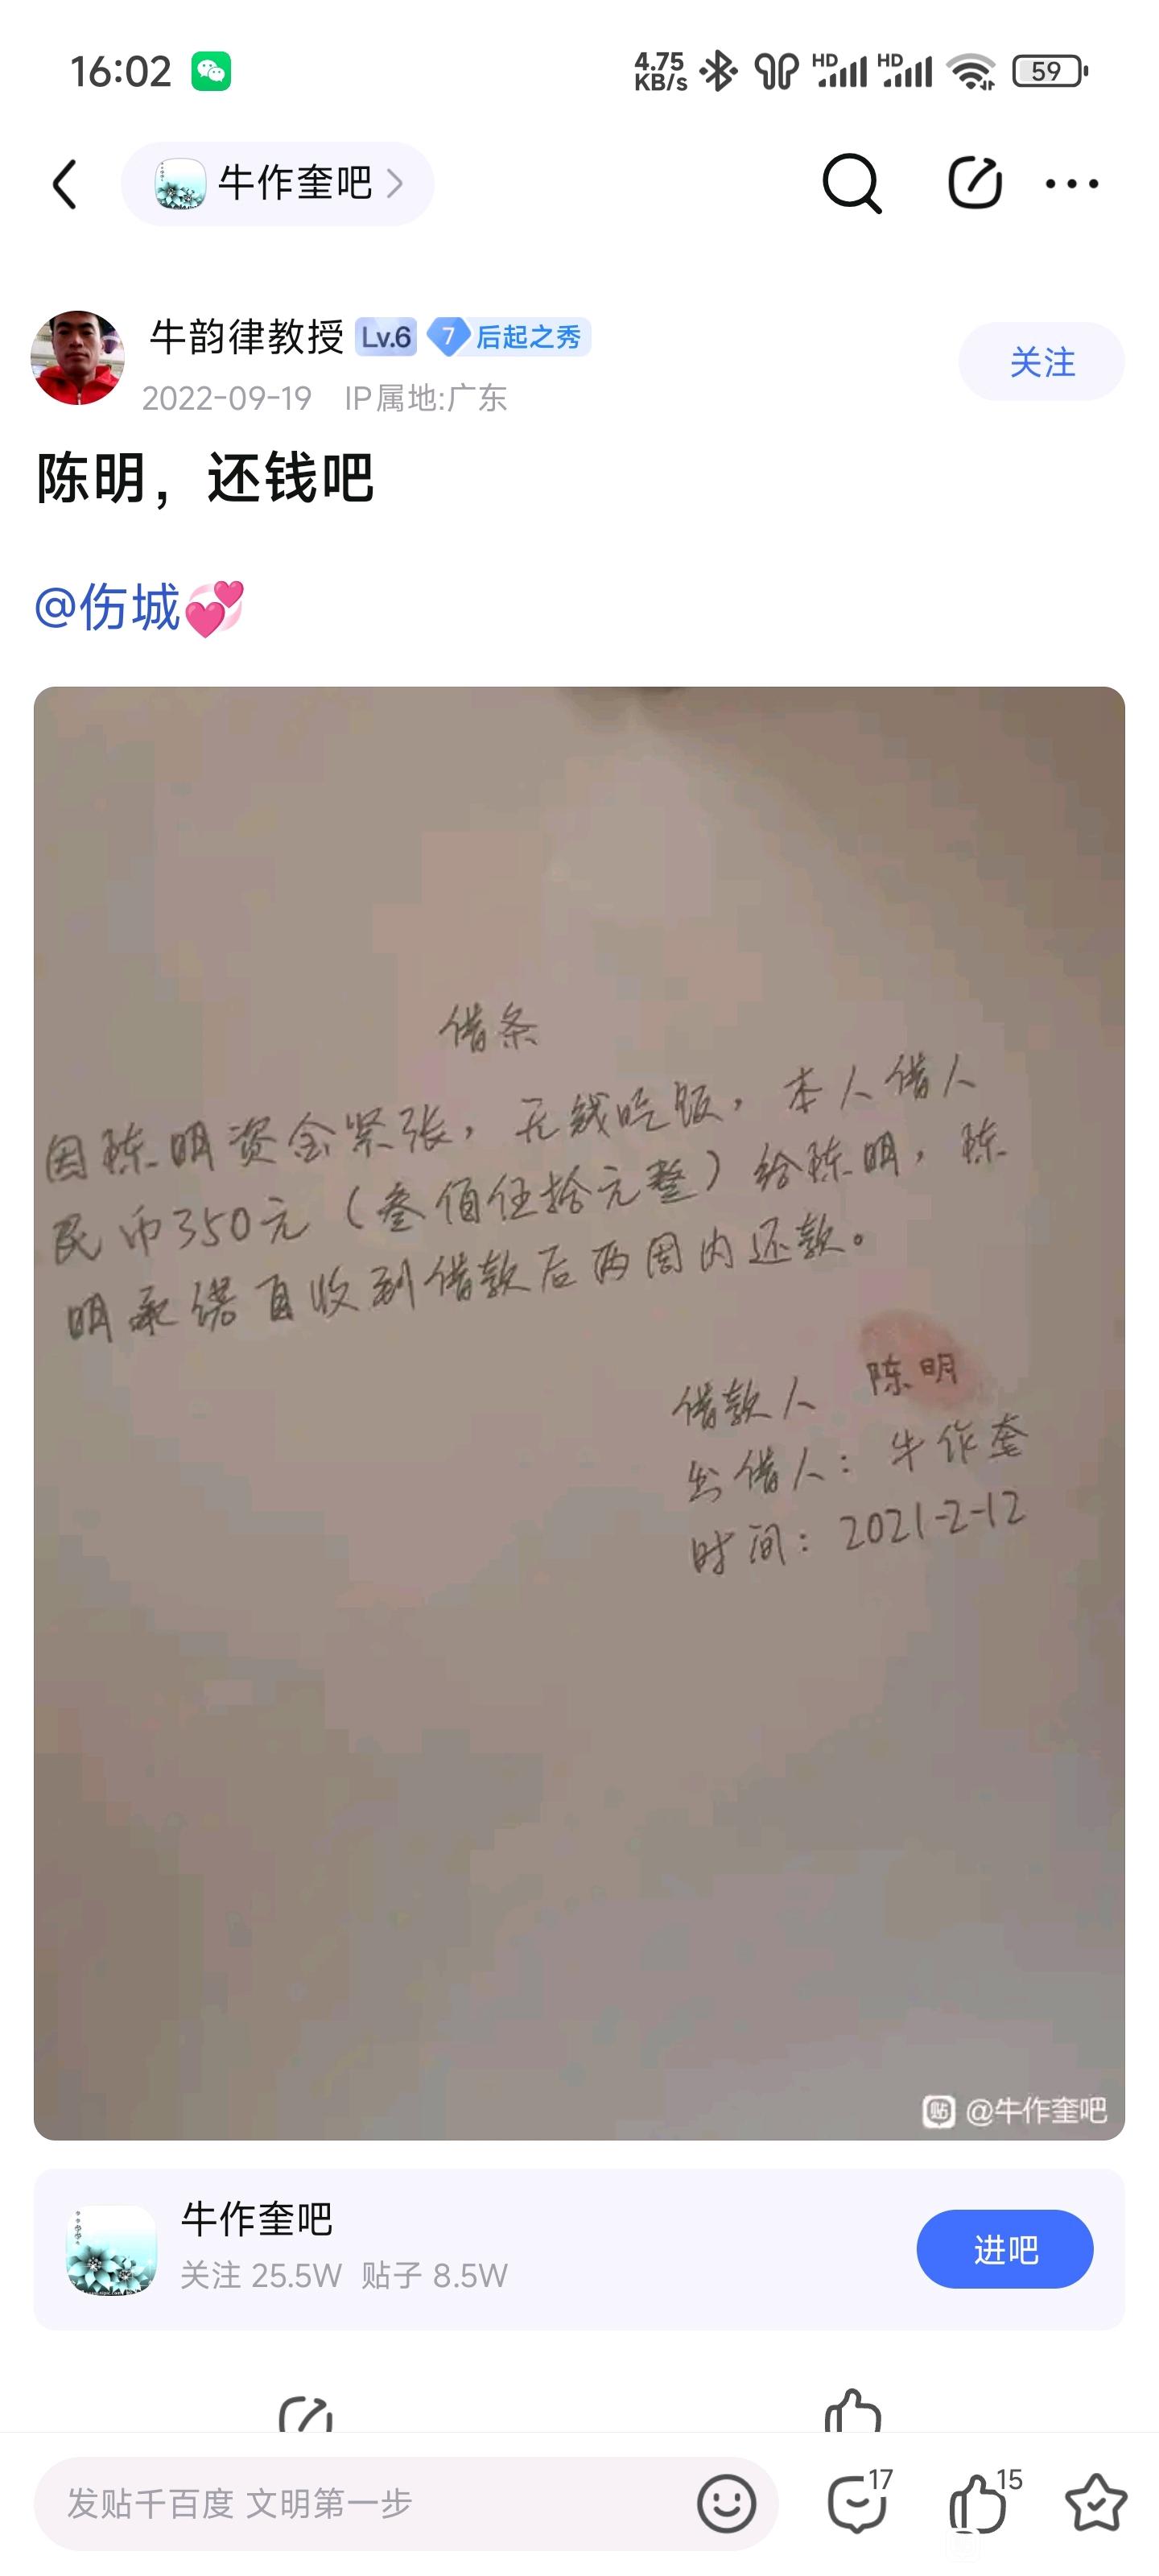 16:02
4.75 KB/s HD HD 59
牛作奎吧
牛韵律教授 Lv.6 7 后起之秀
2022-09-19 IP属地:广东
关注
陈明，还钱吧
@伤城💞
借条
因陈明资金紧张，无钱吃饭，本人借人
民币350元（叁佰伍拾元整）给陈明，陈
明承偌自收到借款后两周内还款。
借款人 陈明
出借人：牛作奎
时间：2021-2-12
贴 @牛作奎吧
牛作奎吧
关注 25.5W 贴子 8.5W
进吧
发贴千百度 文明第一步
17
15